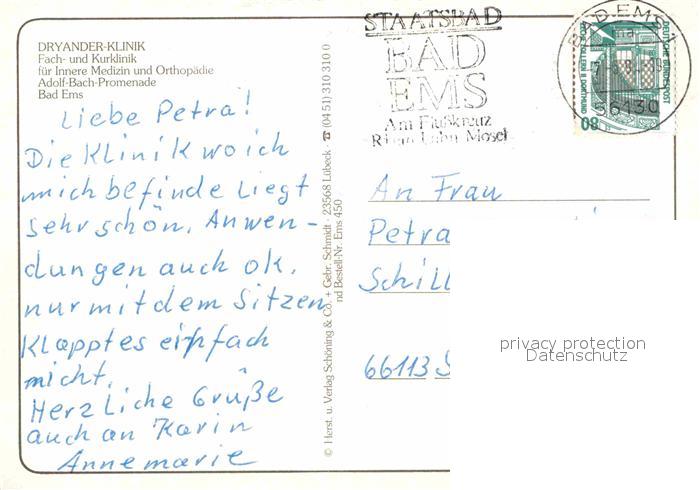 DRYANDER-KLINIK
Fach- und Kurklinik
für Innere Medizin und Orthopädie
Adolf-Bach-Promenade
Bad Ems
Liebe Petra!
Die Klinik wo ich
mich befinde liegt
sehr schön. Anwen-
dungen auch ok.
nur mit dem Sitzen
klapptes einfach
nicht.
Herzliche Grüße
auch an Karin
Annemarie
© Herst. u. Verlag Schöning & Co. + Gebr. Schmidt · 23568 Lübeck · ☎ (04 51) 310 310 0
nd Bestell-Nr. Ems 450
STAATSBAD
BAD
EMS
Am Flußkreuz
Rhein Lahn Mosel
BAD EMS 1
56130
DEUTSCHE BUNDESPOST
ZECHE ZOLLERN II, DORTMUND
80
An Frau
Petra
Schill
66113 S
privacy protection
Datenschutz